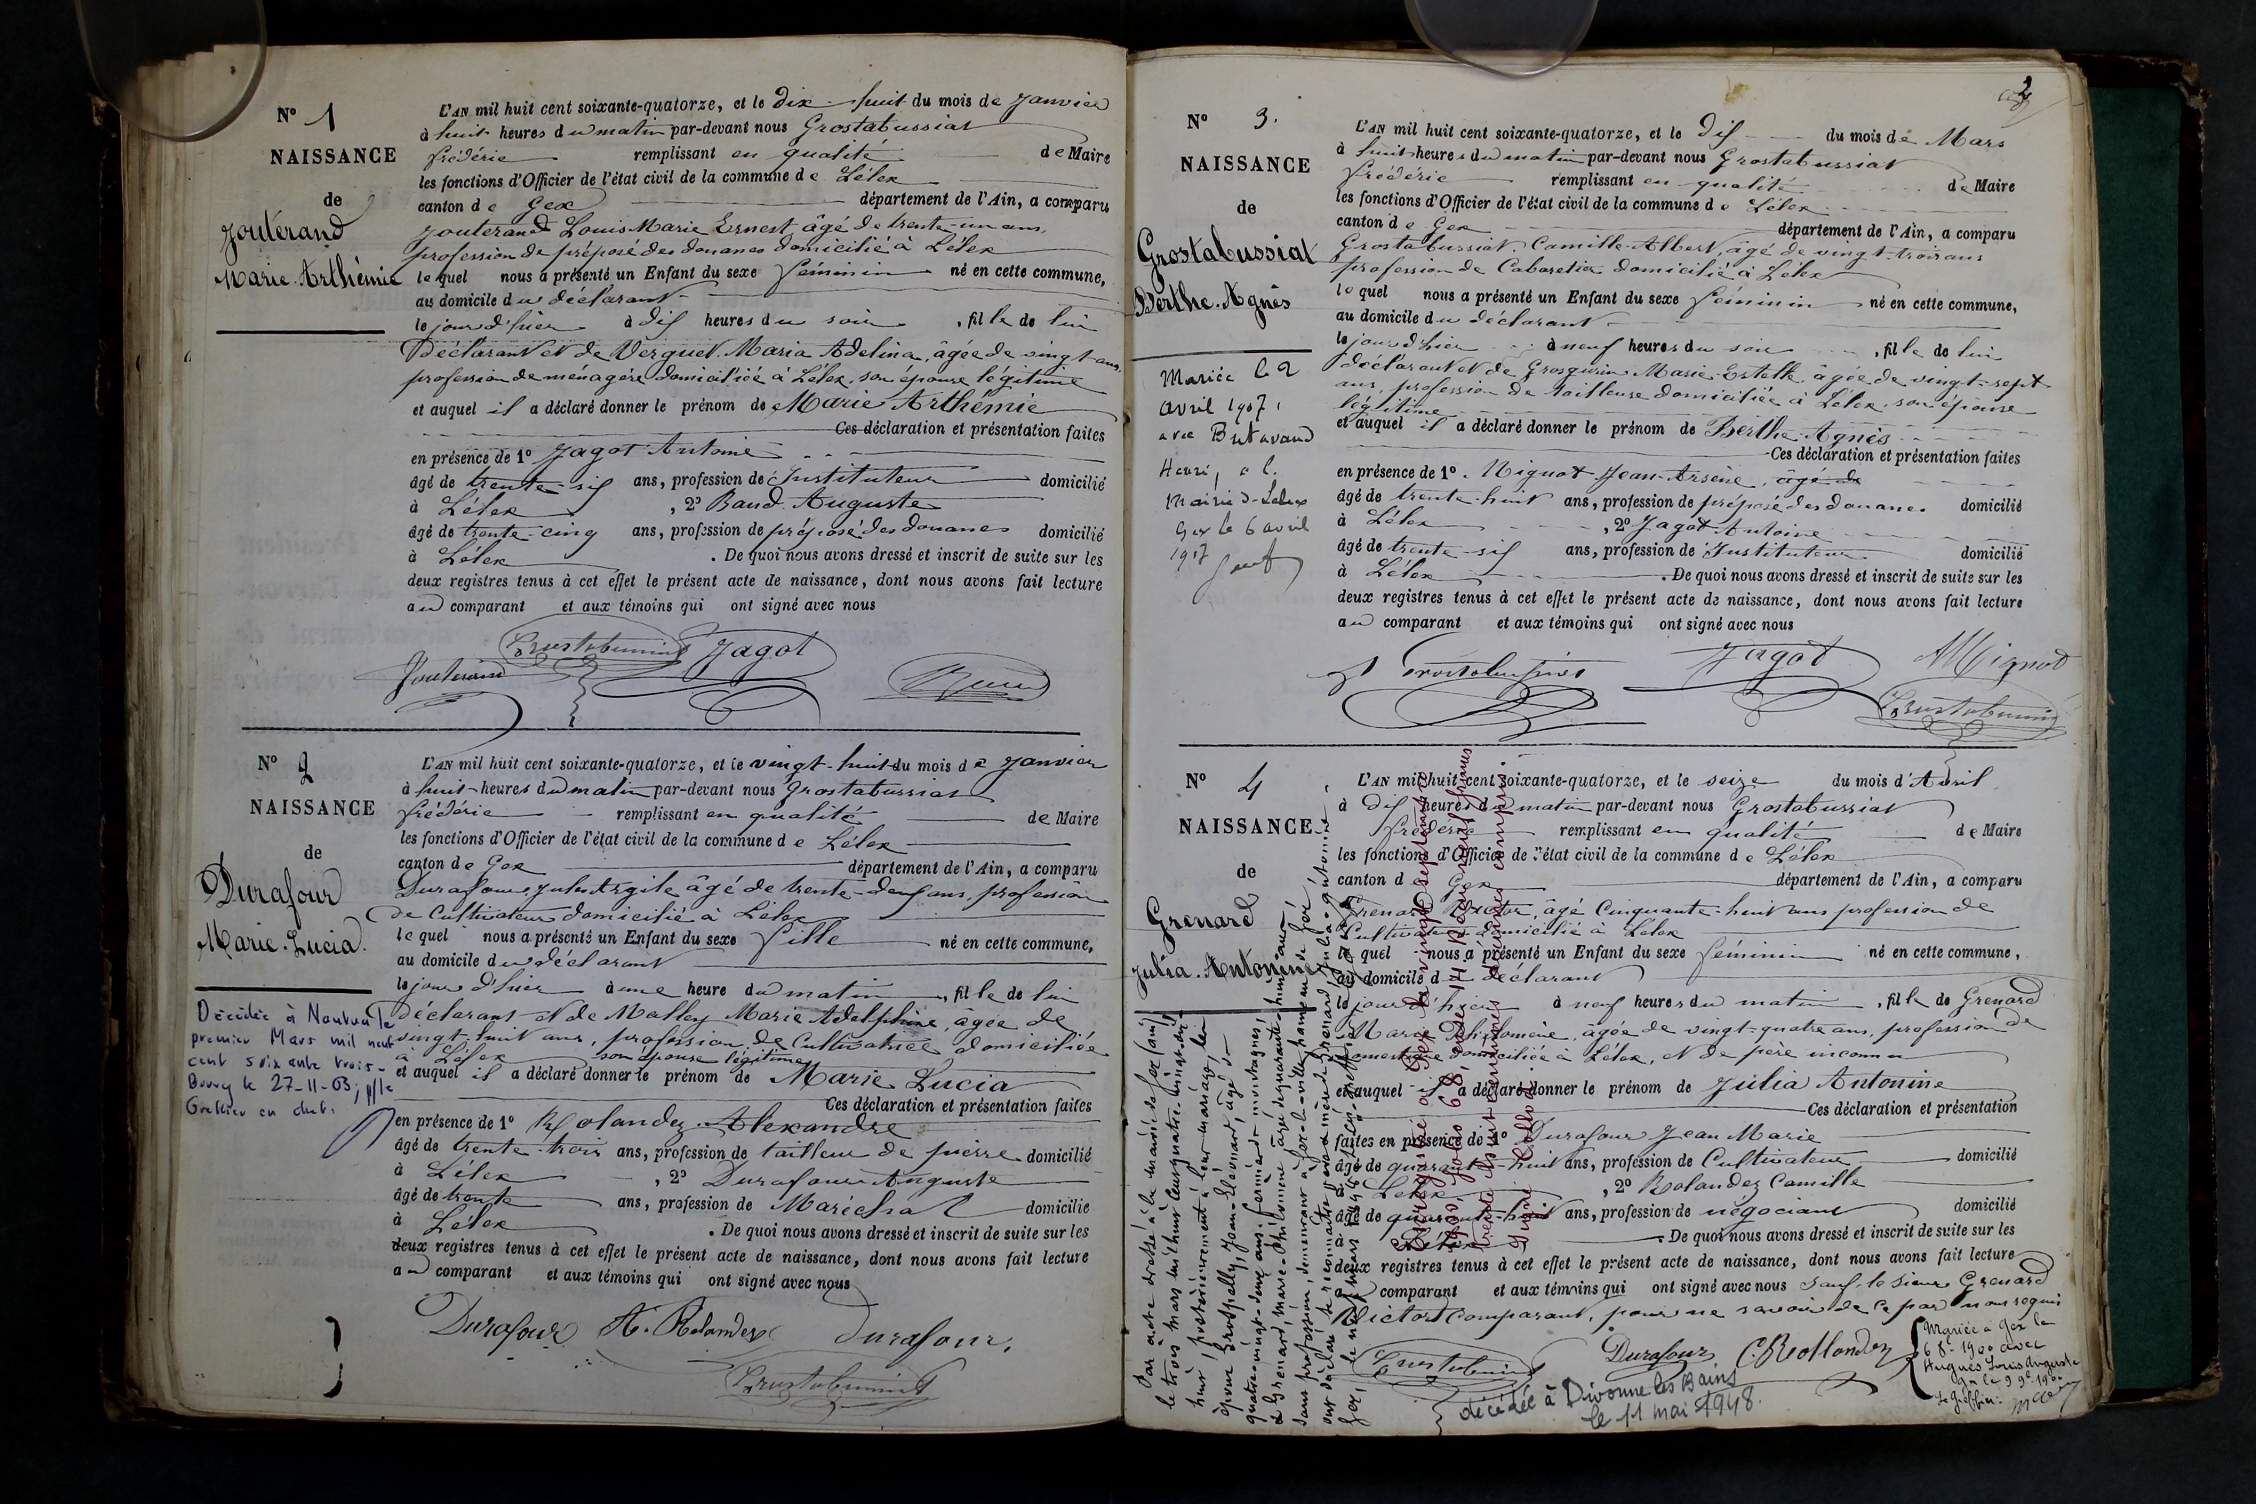 N° 1
NAISSANCE
de
Jouterand
Marie Arthémie
L'AN mil huit cent soixante-quatorze, et le dix-huit du mois de Janvier
à huit heures du matin par-devant nous Grostabussiat
frédéric remplissant en qualité de Maire
les fonctions d'Officier de l'état civil de la commune de Lélex
canton de Gex département de l'Ain, a comparu
Jouterand Louis Marie Ernest âgé de trente-un ans,
profession de préposé des douanes domicilié à Lélex
lequel nous a présenté un Enfant du sexe féminin né en cette commune,
au domicile du déclarant
le jour d'hier à dix heures du soir, fille de lui
Déclarant et de Verguet Maria Adelina, âgée de vingt ans,
profession de ménagère domiciliée à Lélex, son épouse légitime
et auquel il a déclaré donner le prénom de Marie Arthémie
Ces déclaration et présentation faites
en présence de 1° Jagot Antoine
âgé de trente-six ans, profession de Instituteur domicilié
à Lélex, 2° Baud Auguste
âgé de trente-cinq ans, profession de préposé des douanes domicilié
à Lélex. De quoi nous avons dressé et inscrit de suite sur les
deux registres tenus à cet effet le présent acte de naissance, dont nous avons fait lecture
au comparant et aux témoins qui ont signé avec nous
Jouterand Jagot
N° 2
NAISSANCE
de
Durafour
Marie-Lucia.
Décédée à Nantua le
premier Mars mil neuf
cent soixante trois-
Bourg le 27-11-63; p/le
Greffier en chef:
L'AN mil huit cent soixante-quatorze, et le vingt-huit du mois de Janvier
à huit heures du matin par-devant nous Grostabussiat
frédéric remplissant en qualité de Maire
les fonctions d'Officier de l'état civil de la commune de Lélex
canton de Gex département de l'Ain, a comparu
Durafour Jules Argile âgé de trente-deux ans, profession
de Cultivateur domicilié à Lélex
lequel nous a présenté un Enfant du sexe fille né en cette commune,
au domicile du déclarant
le jour d'hier à une heure du matin, fille de lui
Déclarant et de Mathey Marie Adelphine, âgée de
vingt-huit ans, profession de Cultivatrice domiciliée
à Lélex son épouse légitime
et auquel il a déclaré donner le prénom de Marie Lucia
Ces déclaration et présentation faites
en présence de 1° Rolandez Alexandre
âgé de trente-trois ans, profession de tailleur de pierre domicilié
à Lélex, 2° Durafour Auguste
âgé de trente ans, profession de Maréchal domicilié
à Lélex. De quoi nous avons dressé et inscrit de suite sur les
deux registres tenus à cet effet le présent acte de naissance, dont nous avons fait lecture
au comparant et aux témoins qui ont signé avec nous
Durafour A. Rolandez Durafour.
2
N° 3.
NAISSANCE
de
Grostabussiat
Berthe-Agnès
Mariée le 2
avril 1907,
avec Butavand
Henri, à la
Mairie de Lélex
Gex le 6 avril
1907
L'AN mil huit cent soixante-quatorze, et le dix du mois de Mars
à huit heures du matin par-devant nous Grostabussiat
frédéric remplissant en qualité de Maire
les fonctions d'Officier de l'état civil de la commune de Lélex
canton de Gex département de l'Ain, a comparu
Grostabussiat Camille Albert, âgé de vingt-trois ans
profession de Cabaretier domicilié à Lélex
lequel nous a présenté un Enfant du sexe féminin né en cette commune,
au domicile du déclarant
le jour d'hier à neuf heures du soir, fille de lui
déclarant et de Grosgurin Marie-Estelle âgée de vingt-sept
ans, profession de tailleuse domiciliée à Lélex, son épouse
légitime
et auquel il a déclaré donner le prénom de Berthe Agnès
Ces déclaration et présentation faites
en présence de 1°. Mignot Jean-Arsène, âgé de
âgé de trente-huit ans, profession de préposé des douanes domicilié
à Lélex, 2° Jagot Antoine
âgé de trente-six ans, profession de Instituteur domicilié
à Lélex. De quoi nous avons dressé et inscrit de suite sur les
deux registres tenus à cet effet le présent acte de naissance, dont nous avons fait lecture
au comparant et aux témoins qui ont signé avec nous
Jagot Mignot
N° 4
NAISSANCE
de
Grenard
Julia-Antonine
L'AN mil huit cent soixante-quatorze, et le seize du mois d'Avril
à dix heures du matin par-devant nous Grostabussiat
frédéric remplissant en qualité de Maire
les fonctions d'Officier de l'état civil de la commune de Lélex
canton de Gex département de l'Ain, a comparu
Grenard Victor, âgé Cinquante-huit ans profession de
Cultivateur domicilié à Lélex
lequel nous a présenté un Enfant du sexe féminin né en cette commune,
au domicile du déclarant
le jour d'hier à neuf heures du matin, fille de Grenard
Marie Philomène, âgée de vingt-quatre ans, profession de
domestique domiciliée à Lélex, et de père inconnu
et auquel il a déclaré donner le prénom de Julia Antonine
Ces déclaration et présentation
faites en présence de 1° Durafour Jean Marie
âgé de quarante-huit ans, profession de Cultivateur domicilié
à Lélex, 2° Rolandez Camille
âgé de quarante-huit ans, profession de négociant domicilié
à Lélex. De quoi nous avons dressé et inscrit de suite sur les
deux registres tenus à cet effet le présent acte de naissance, dont nous avons fait lecture
au comparant et aux témoins qui ont signé avec nous sauf le sieur Grenard
Victor comparant, pour ne savoir de ce par nous requis
Durafour C. Rollandez
Mariée à Gex le
6 8bre 1900 avec
Hugues Louis Auguste
Gex le 9 9bre 1900
Le greffier:
décédée à Divonne les Bains
le 11 mai 1948.
Par acte dressé à la mairie de Gex (Ain)
le trois mars mil huit cent quatre-vingt-dix-
huit, postérieurement à leur mariage, les
époux Grospelly, Jean-Léonard, âgé de
quarante-deux ans,
& Grenard, Marie-Philomène âgée de quarante-huit ans
sans profession, demeurant à
ont déclaré se reconnaître père et mère de Grenard, Julia-Antonine.
Gex, le neuf mars 1898. Le Greffier
Enregistré à Gex le vingt septembre
1900 folio 68, case 14 Reçu neuf francs
trente-huit centimes, décimes compris.